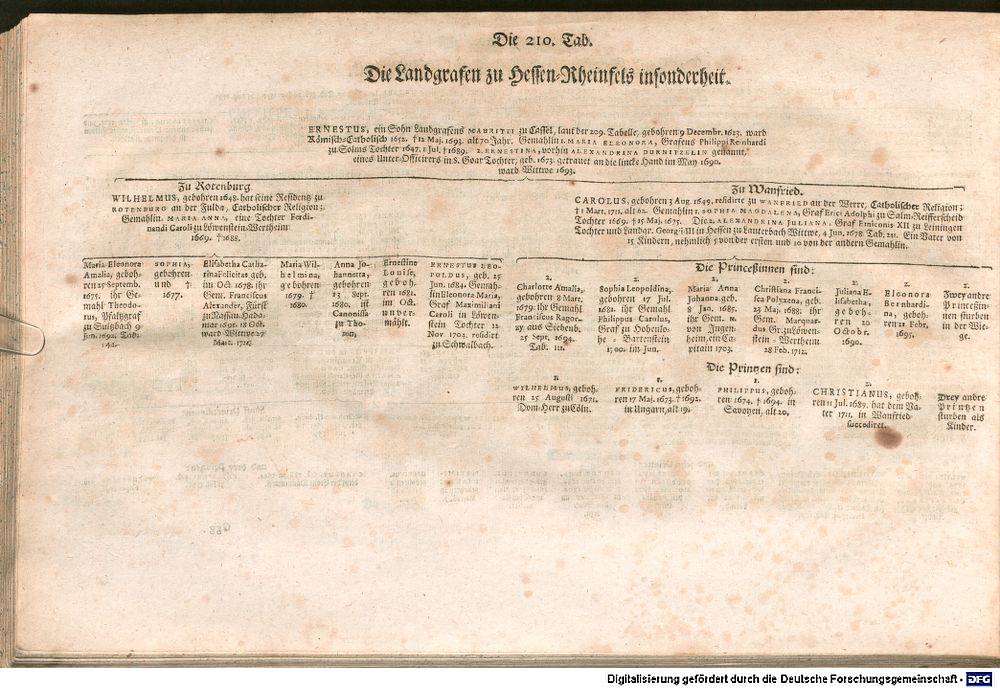 Die 210. Tab.
Die Landgrafen zu Hessen-Rheinfels insonderheit.
ERNESTUS, ein Sohn Landgrafens MAURITII zu Cassel, laut der 209. Tabelle, gebohren 9 Decembr. 1623. ward
Römisch-Catholisch 1652. † 12 Maj. 1693. alt 70 Jahr. Gemahlin 1. MARIA ELEONORA, Grafens Philippi Reinhardi
zu Solms Tochter 1647. † Jul. † 1689. 2. ERNESTINA, vorhin ALEXANDRINA DURNITZELIN genannt,
eines Unter-Officirers in S. Goar Tochter, geb. 1673. getrauet an die lincke Hand im May 1690.
ward Wittwe 1693.
Zu Rotenburg.
WILHELMUS, gebohren 1648. hat seine Residentz zu
ROTENBURG an der Fulda, Catholischer Religion;
Gemahlin. MARIA ANNA, eine Tochter Ferdi-
nandi Caroli zu Löwenstein-Wertheim
1669. † 1688.
Zu Wanfried.
CAROLUS, gebohren 3 Aug. 1649. residirte zu WANFRIED an der Werre, Catholischer Religion;
† 1 Mart. 1711. alt 62. Gemahlin 1. SOPHIA MAGDALENA, Graf Erici Adolphi zu Salm-Reifferscheid
Tochter 1669. † 15 Maj. 1675. Die 2. ALEXANDRINA JULIANA, Graf Emiconis XII zu Leiningen
Tochter und Landgr. Georgii III in Hessen zu Lauterbach Wittwe, 4 Jun. 1678. Tab. 211. Ein Vater von
15 Kindern, nehmlich 5 von der ersten und 10 von der andern Gemahlin.
Maria Eleonora
Amalia, geboh-
ren 25 Septemb.
1675. ihr Ge-
mahl Theodo-
rus, Pfaltzgraf
zu Sultzbach 9
Jun. 1692. Tab.
142.
SOPHIA,
gebohren
und †
1677.
Elisabetha Catha-
rina Felicitas geb.
im Oct. 1678. ihr
Gem. Franciscus
Alexander, Fürst
zu Nassau-Hada-
mar 1695. 18 Oct.
ward Wittwe 27
Mart. 1711.
Maria Wil-
helmina,
gebohren
1679. †
1680.
Anna Jo-
hannetta,
gebohren
13 Sept.
1680. ist
Canonissa
zu Tho-
ren,
Ernestine
Louise,
geboh-
ren 1681.
im Oct.
unver-
mählt.
ERNESTUS LEO-
POLDUS, geb. 25
Jun. 1684. Gemah-
lin Eleonora Maria,
Graf Maximiliani
Caroli in Löwen-
stein Tochter 12
Nov. 1703. residirt
zu Schwalbach.
Die Princeßinnen sind:
2.
Charlotte Amalia,
gebohren 8 Mart.
1679. ihr Gemahl
Franciscus Ragoc-
zy aus Siebenb.
25 Sept. 1694.
Tab. 111.
2.
Sophia Leopoldina,
gebohren 17 Jul.
1681. ihr Gemahl
Philippus Carolus,
Graf zu Hohenlo-
he - Bartenstein
1700. im Jun.
2.
Maria Anna
Johanna, geb.
8 Jan. 1685.
ihr Gem. N.
von Ingen-
heim, ein Ca-
pitain 1703.
2.
Christiana Franci-
sca Polyxena, geb.
23 Maj. 1688. ihr
Gem. Marquar-
dus Gr. zu Löwen-
stein - Wertheim
28 Feb. 1712.
2.
Juliana E-
lisabetha,
geboh-
ren 20
Octobr.
1690.
2.
Eleonora
Bernhardi-
na, geboh-
ren 21 Febr.
1695.
2.
Zwey andre
Princeßin-
nen sturben
in der Wie-
ge.
Die Printzen sind:
1.
WILHELMUS, geboh-
ren 25 Augusti 1671.
Dom-Herr zu Cöln.
1.
FRIDERICUS, geboh-
ren 17 Maj. 1673. † 1692.
in Ungarn, alt 19.
1.
PHILIPPUS, geboh-
ren 1674. † 1694. in
Savoyen, alt 20.
2.
CHRISTIANUS, geboh-
ren 11 Jul. 1689. hat dem Va-
ter 1711. in Wanfried
succediret.
Drey andre
Printzen
sturben als
Kinder.
Digitalisierung gefördert durch die Deutsche Forschungsgemeinschaft - DFG